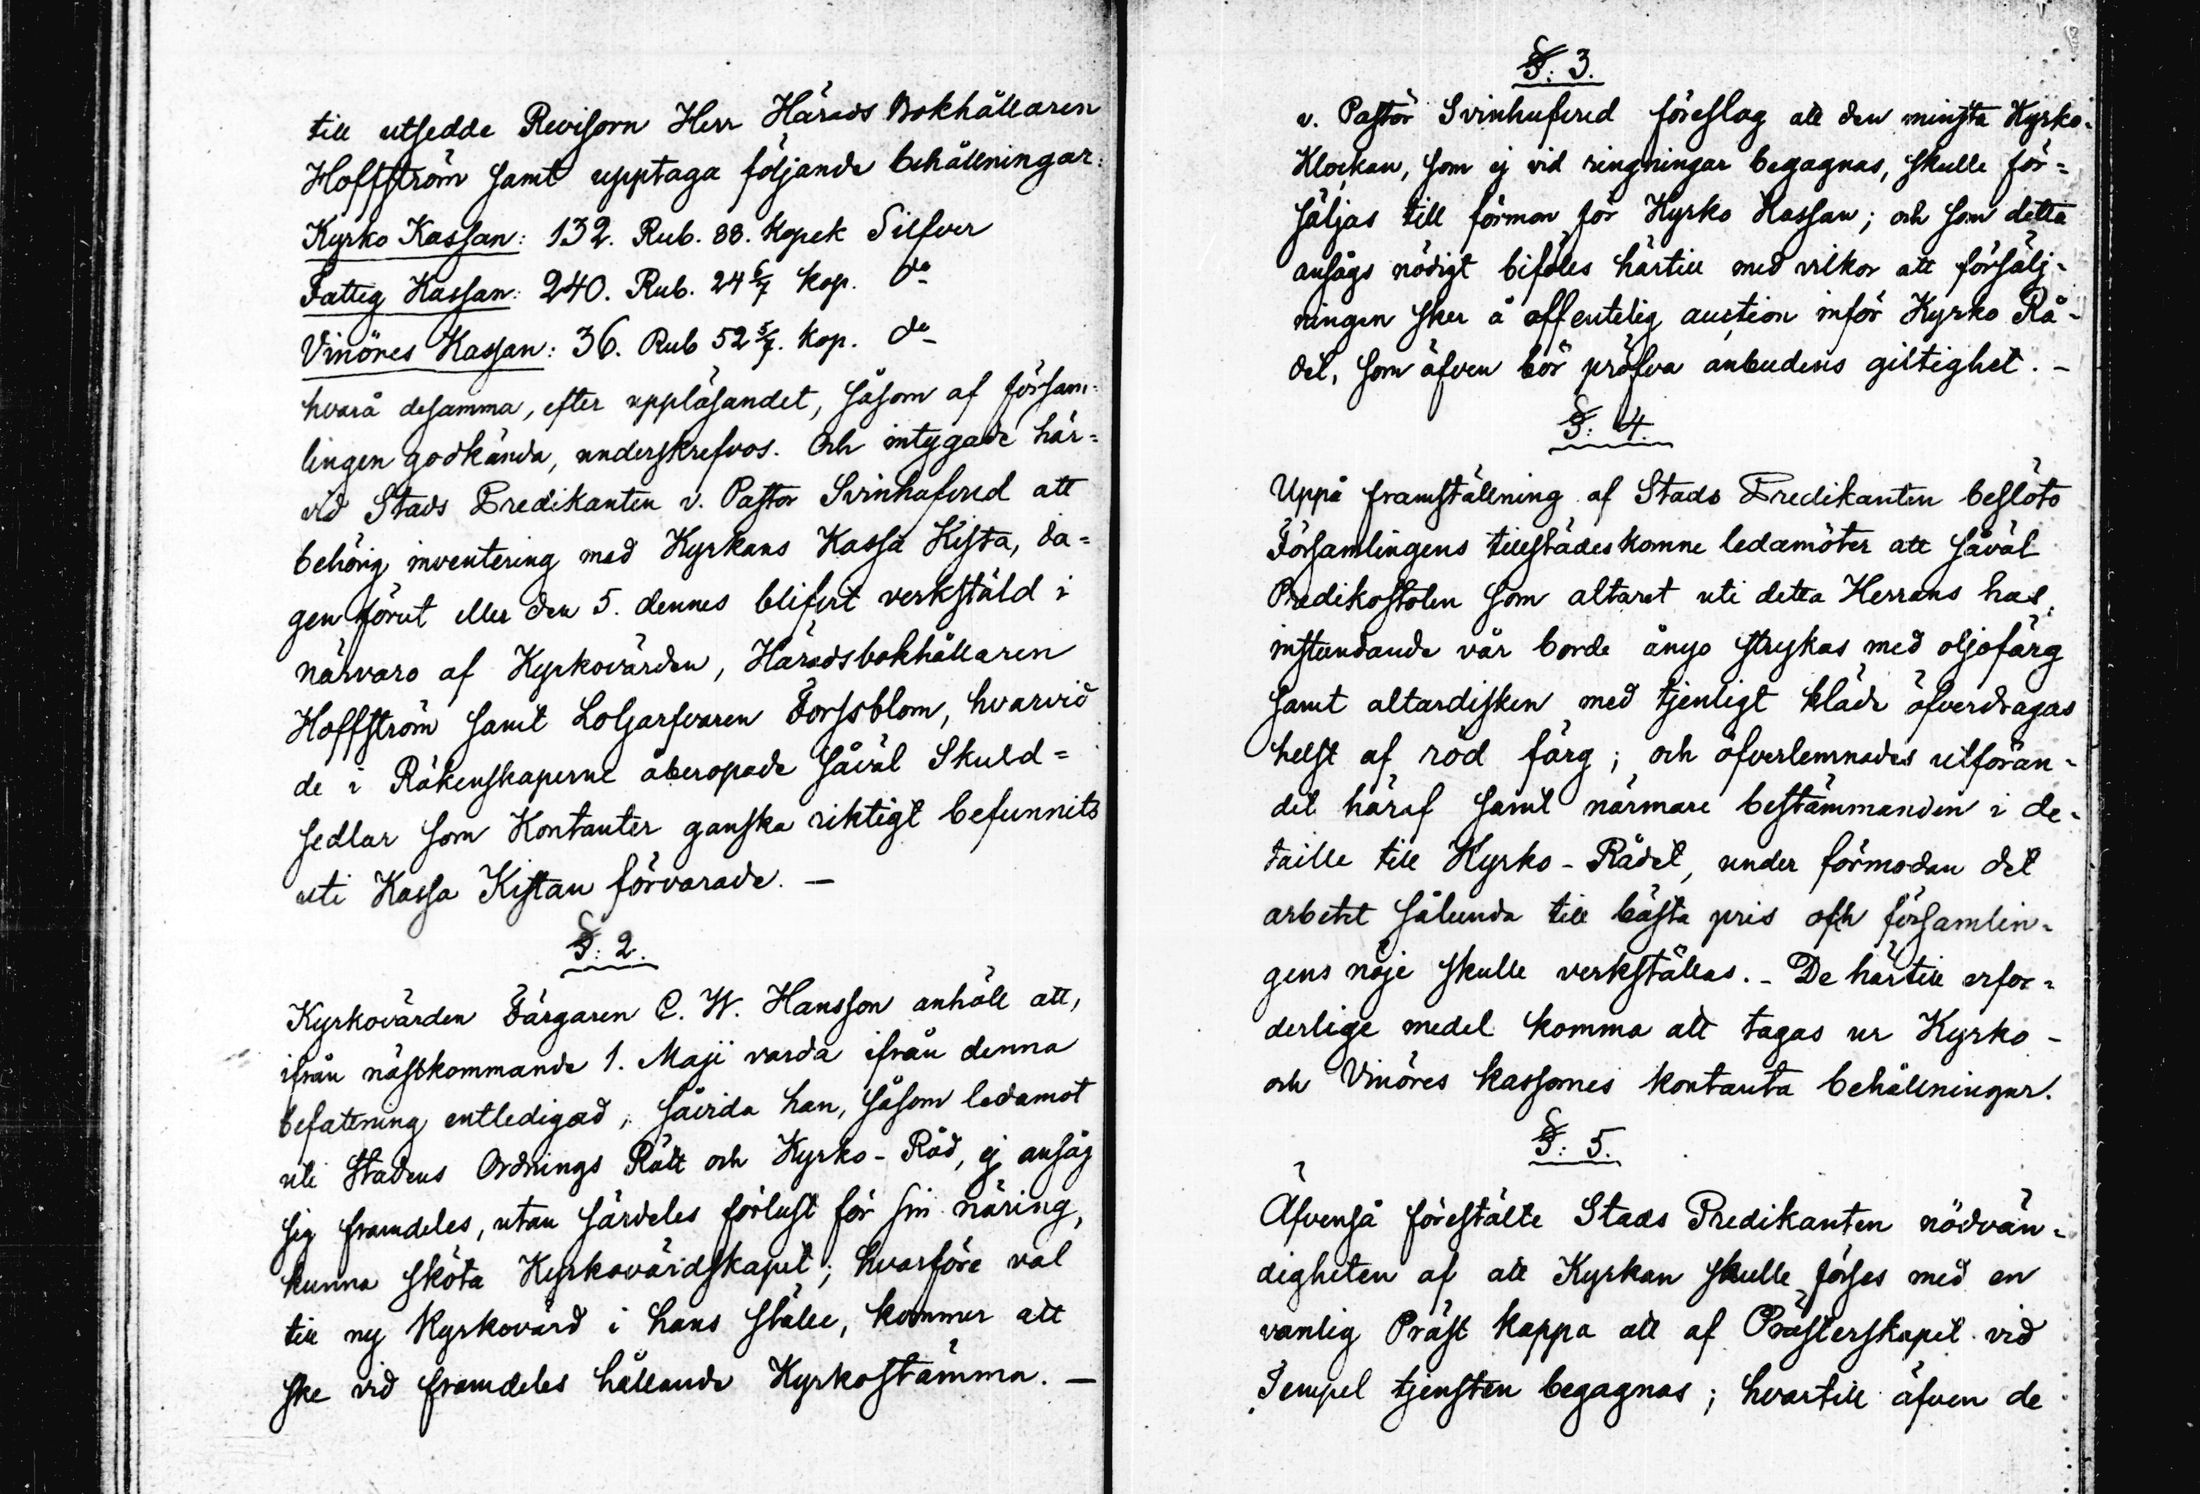 till utsedde Revisorn Herr Härads Bokhållaren
Hoffström samt upptaga följande behållningar:
Kyrko Kassan: 132. Rub. 88. Kopek Silfver
Fattig Kassan: 240. Rub. 24 6/7 kop. do
Vinöres Kassan: 36. Rub 52 5/7. kop. do
hvarå desamma, efter uppläsandet, såsom af försam-
lingen godkända, underskrefvos. Och intygade här=
vid Stads Predikanten v. Pastor Svinhufvud att
behörig inventering med Kyrkans Kassa Kista, da=
gen förut eller den 5. dennes blifvit verkstäld i
närvaro af Kyrkovärden, Häradsbokhållaren
Hoffström samt Lolgarfvaren Forssblom, hvarvid
de i Räkenskaperne åberopade såväl Skuld=
sedlar som Kontanter ganska riktigt befunnits
uti Kassa Kistan förvarade. —
§: 2.
Kyrkovärden Färgaren C. W. Hansson anhöll att,
ifrån nästkommande 1. Maji varda ifrån denna
befattning entledigad, såvida han, såsom ledamot
uti Stadens Ordnings Rätt och Kyrko-Råd, ej ansåg
sig framdeles, utan särdeles förlust för sin näring,
kunna sköta Kyrkovärdskapet; hvarföre val
till ny Kyrkovärd i hans ställe, kommer att
ske vid framdeles hållande Kyrkostämma. —
§: 3.
v. Pastor Svinhufvud föreslog att den minsta Kyrko-
Klockan, som ej vid ringningar begagnas, skulle för=
säljas till förmon för Kyrko Kassan; och som detta
ansågs nödigt biföles härtill med vilkor att försälj-
ningen sker å offentelig auction inför Kyrko Rå-
det, som äfven bör pröfva anbudens giltighet. —
§: 4.
Uppå framställning af Stads Predikanten beslöto
Församlingens tillstädeskomne ledamöter att såväl
Predikostolen som altaret uti detta Herrans hus,
instundande vår borde ånyo strykas med oljofärg
samt altardisken med tjenligt kläde öfverdragas
helst af röd färg; och öfverlemnades utföran-
det häraf samt närmare bestämmanden i de-
taille till Kyrko-Rådet, under förmodan det
arbetet sålunda till bästa pris och församlin-
gens nöje skulle verkställas. - De härtill erfor-
derlige medel komma att tagas ur Kyrko-
och Vinöres kassornes kontanta behållningar.
§: 5.
Äfvenså förestälte Stads Predikanten nödvän-
digheten af att Kyrkan skulle förses med en
vanlig Präst kappa att af Prästerskapet vid
Tempel tjensten begagnas; hvartill äfven de